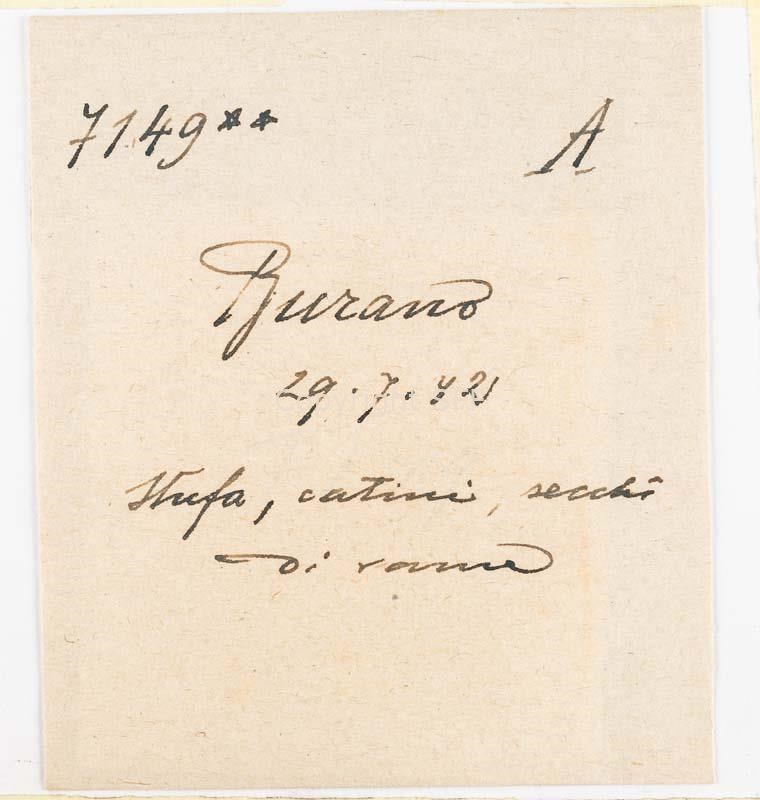 7149** A
Burano
29.7.42
stufa, catini, secchi
di rame